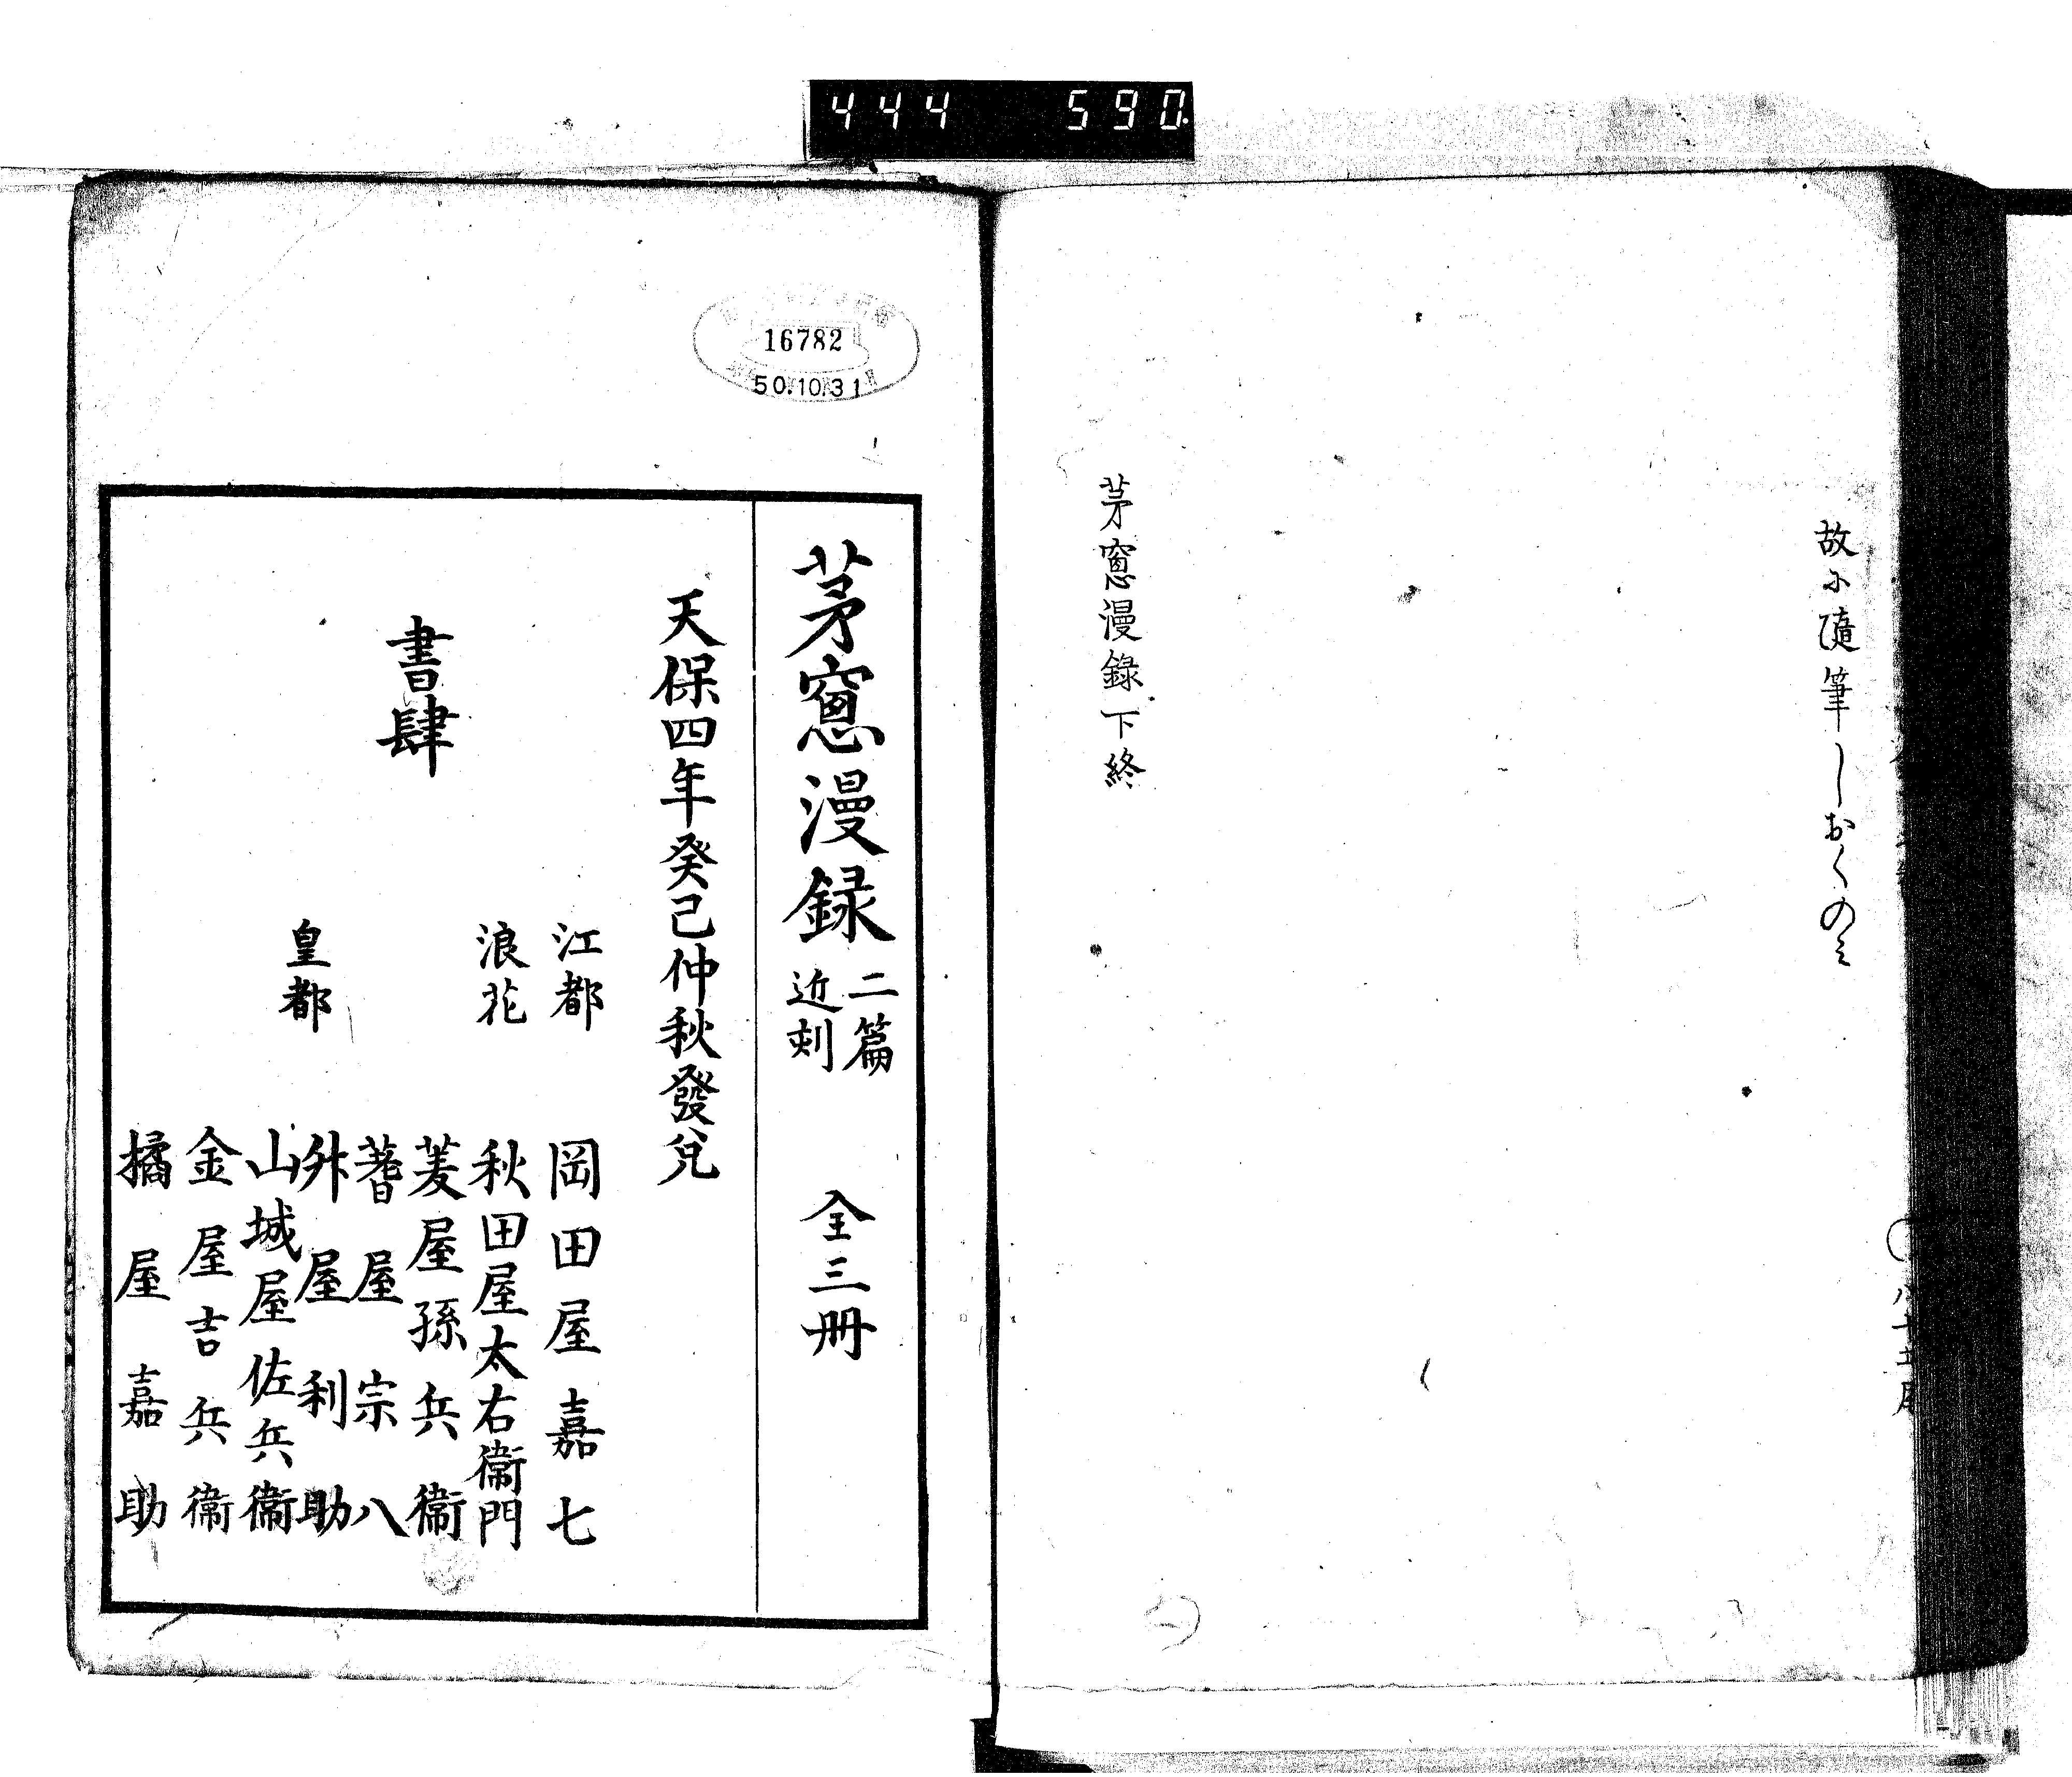 444 590
故に随筆しおくのミ
茅窻漫録下終
16782
50.10.31
茅窻漫録 二篇近刻 全三冊
天保四年癸巳仲秋發兌
書肆
江都 岡田屋嘉七
浪花 秋田屋太右衞門
皇都
菱屋孫兵衞
蓍屋宗八
舛屋利助
山城屋佐兵衞
金屋吉兵衞
橘屋嘉助